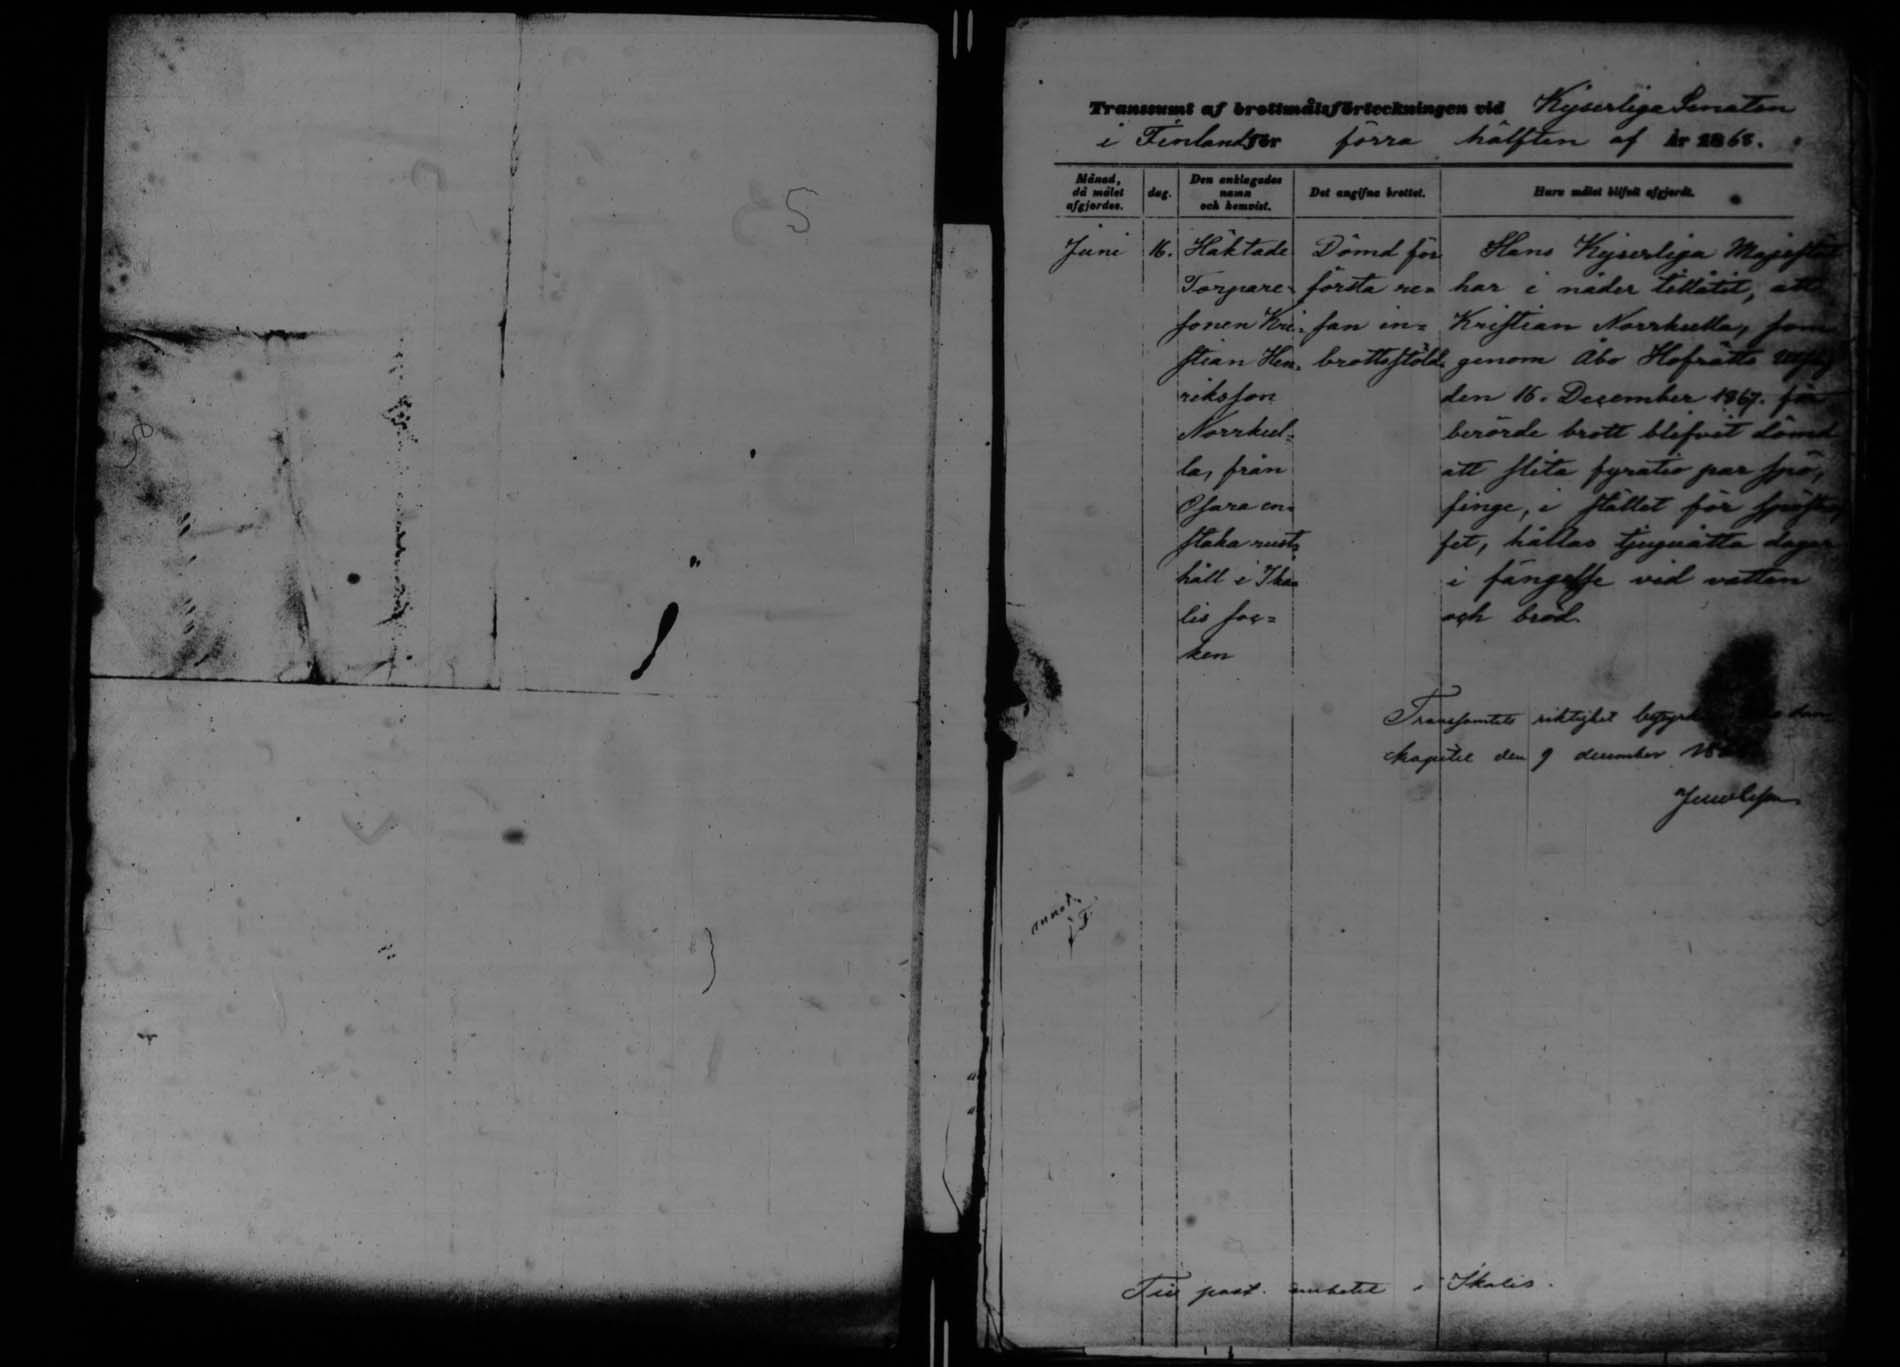 Transsumt af brottmålsförteckningen vid Kejserliga Senaten
i Finland för förra hälften af År 1868.
Månad, då målet afgjordes.
dag.
Den anklagades namn och hemvist.
Det angifna brottet.
Huru målet blifvit afgjordt.
Juni
16.
Häktade
Torpare-
sonen Kri-
stian Hen-
riksson
Norrkul-
la, från
Osara en-
staka rust-
håll i Ika-
lis soc-
ken
Dömd för
första re-
san in-
brottsstöld.
Hans Kejserliga Majestät
har i nåder tillåtit, att
Kristian Norrkulla, som
genom Åbo Hofrätts Utslag
den 16. December 1867. för
berörde brott blifvit dömd
att slita fyratio par spö,
finge, i stället för spöstraf-
fet, hållas tjuguåtta dagar
i fängelse vid vatten
och bröd.
Transsumtets riktighet betygar
kapitel den 9 december 18
annot.
Till past. embetet i Ikalis.